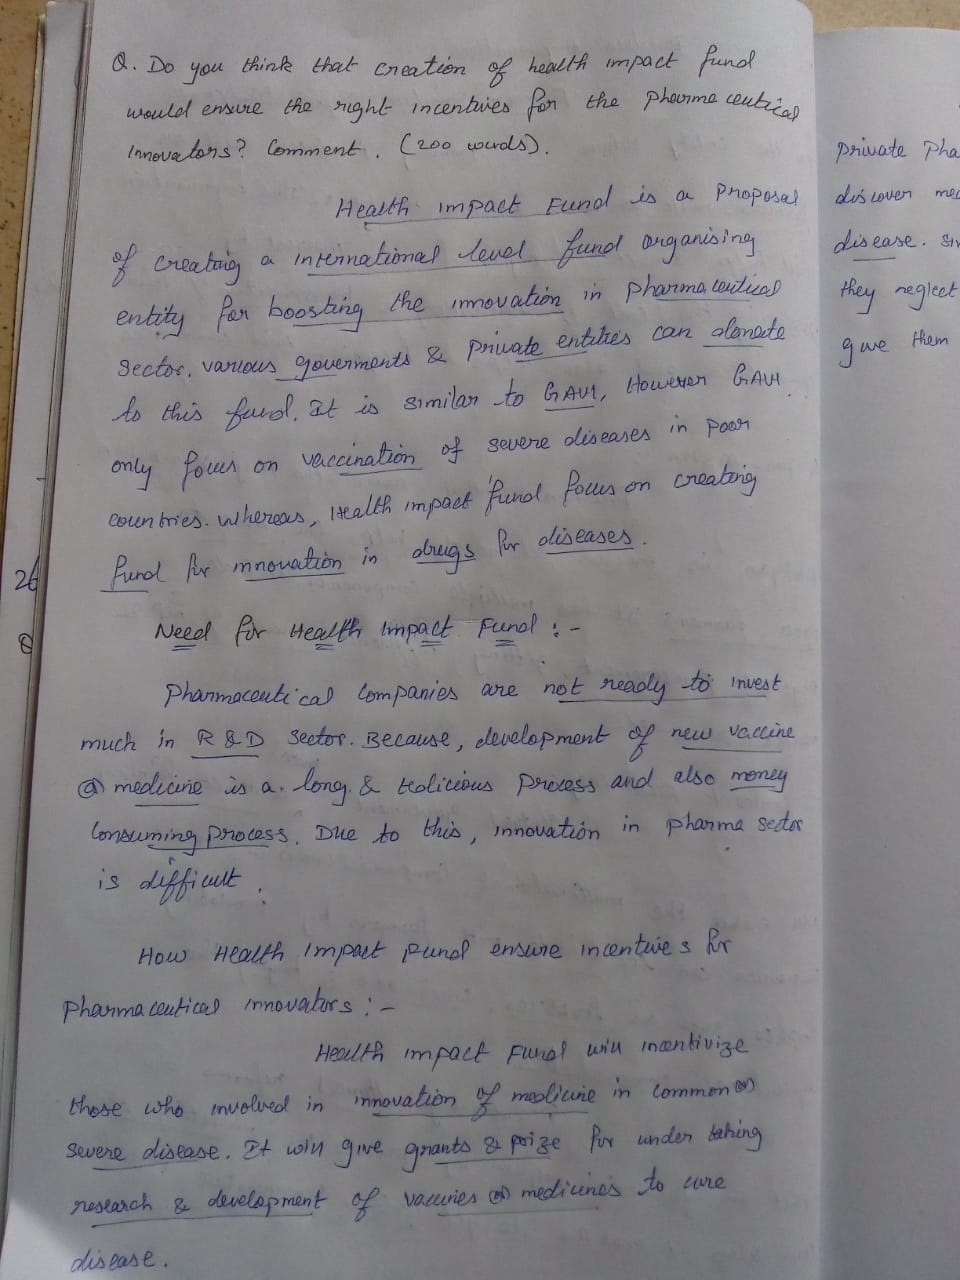 Q. Do you think that creation of health impact fund
would ensure the right incentives for the pharmaceutical
innovators? Comment. (200 words).
Health impact Fund is a proposal
of creating a international level fund organising
entity for boosting the innovation in pharmaceutical
sector. various goverments & private entities can donate
to this fund. It is similar to GAVI, However GAVI
only focus on vaccination of severe diseases in poor
countries. whereas, Health impact fund focus on creating
fund for innovation in drugs for diseases.
Need for Health Impact Fund :-
Pharmaceutical companies are not ready to invest
much in R&D sector. Because, development of new vaccine
(or) medicine is a long & tedicious process and also money
consuming process. Due to this, innovation in pharma sector
is difficult.
How Health Impact Fund ensure incentives for
pharmaceutical innovators :-
Health impact Fund will incentivize
those who involved in innovation of medicine in common (or)
severe disease. It will give grants & prize for under taking
research & development of vaccines (or) medicines to cure
disease.
26
Q
private Pha
discover med
disease. Sin
they neglect
give them